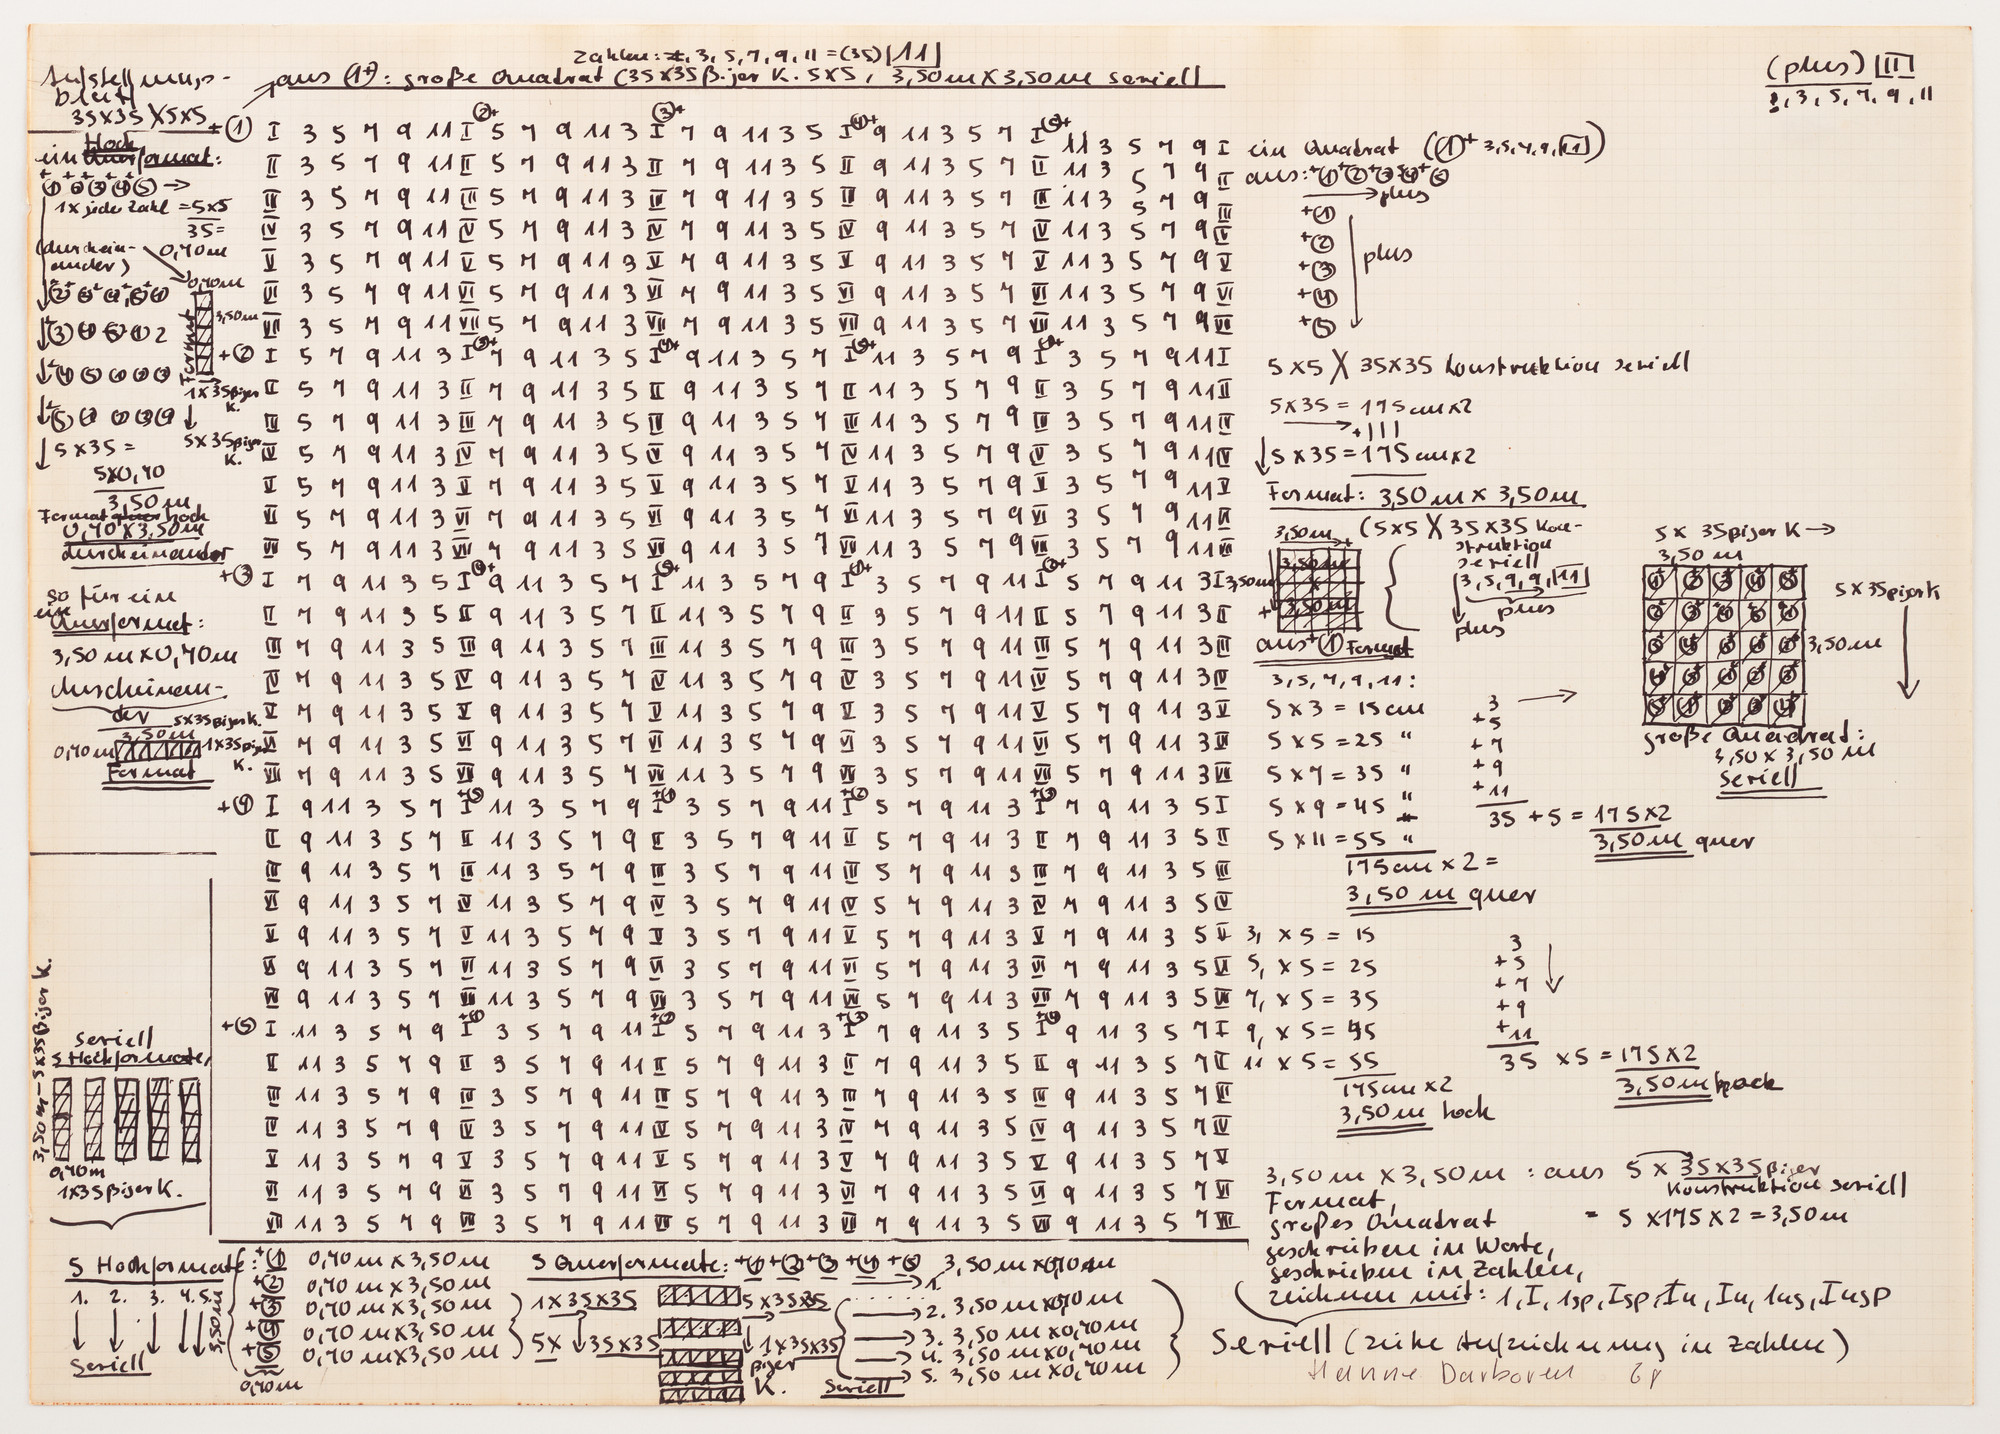 Zahlen: 3, 5, 7, 9, 11 = (35) | 11 |
aus (1+): große Quadrat (35x35ßijer K. 5x5, 3,50m x 3,50m seriell
(plus) | II |
3, 5, 7, 9, 11
Aufstellungs-
blatt
35x35 X 5x5
Hoch
ein format:
+ + + + +
1 2 3 4 5 →
1x jede Zahl = 5x5
35 =
0,70m
(durchein-
ander)
0,70m
3,50m
Format
1x35ßijer
K.
5x35ßijer
K.
5x35 =
5x0,70
3,50m
Format hoch
0,70 x 3,50m
durcheinander
so für ein
ein
Querformat:
3,50m x 0,70m
durcheinan-
der
5x35ßijer K.
3,50m
0,70m 1x35ßijer
K.
Format
+ 1 I 3 5 7 9 11 I 2+ 5 7 9 11 3 I 3+ 7 9 11 3 5 I 4+ 9 11 3 5 7 I 5+ 11 3 5 7 9 I
II 3 5 7 9 11 II 5 7 9 11 3 II 7 9 11 3 5 II 9 11 3 5 7 II 11 3 5 7 9 II
III 3 5 7 9 11 III 5 7 9 11 3 III 7 9 11 3 5 III 9 11 3 5 7 III 11 3 5 7 9 III
IV 3 5 7 9 11 IV 5 7 9 11 3 IV 7 9 11 3 5 IV 9 11 3 5 7 IV 11 3 5 7 9 IV
V 3 5 7 9 11 V 5 7 9 11 3 V 7 9 11 3 5 V 9 11 3 5 7 V 11 3 5 7 9 V
VI 3 5 7 9 11 VI 5 7 9 11 3 VI 7 9 11 3 5 VI 9 11 3 5 7 VI 11 3 5 7 9 VI
VII 3 5 7 9 11 VII 5 7 9 11 3 VII 7 9 11 3 5 VII 9 11 3 5 7 VII 11 3 5 7 9 VII
+ 2 I 5 7 9 11 3 I 3+ 7 9 11 3 5 I 4+ 9 11 3 5 7 I 5+ 11 3 5 7 9 I 1+ 3 5 7 9 11 I
II 5 7 9 11 3 II 7 9 11 3 5 II 9 11 3 5 7 II 11 3 5 7 9 II 3 5 7 9 11 II
III 5 7 9 11 3 III 7 9 11 3 5 III 9 11 3 5 7 III 11 3 5 7 9 III 3 5 7 9 11 III
IV 5 7 9 11 3 IV 7 9 11 3 5 IV 9 11 3 5 7 IV 11 3 5 7 9 IV 3 5 7 9 11 IV
V 5 7 9 11 3 V 7 9 11 3 5 V 9 11 3 5 7 V 11 3 5 7 9 V 3 5 7 9 11 V
VI 5 7 9 11 3 VI 7 9 11 3 5 VI 9 11 3 5 7 VI 11 3 5 7 9 VI 3 5 7 9 11 VI
VII 5 7 9 11 3 VII 7 9 11 3 5 VII 9 11 3 5 7 VII 11 3 5 7 9 VII 3 5 7 9 11 VII
+ 3 I 7 9 11 3 5 I 4+ 9 11 3 5 7 I 5+ 11 3 5 7 9 I 1+ 3 5 7 9 11 I 2+ 5 7 9 11 3 I
II 7 9 11 3 5 II 9 11 3 5 7 II 11 3 5 7 9 II 3 5 7 9 11 II 5 7 9 11 3 II
III 7 9 11 3 5 III 9 11 3 5 7 III 11 3 5 7 9 III 3 5 7 9 11 III 5 7 9 11 3 III
IV 7 9 11 3 5 IV 9 11 3 5 7 IV 11 3 5 7 9 IV 3 5 7 9 11 IV 5 7 9 11 3 IV
V 7 9 11 3 5 V 9 11 3 5 7 V 11 3 5 7 9 V 3 5 7 9 11 V 5 7 9 11 3 V
VI 7 9 11 3 5 VI 9 11 3 5 7 VI 11 3 5 7 9 VI 3 5 7 9 11 VI 5 7 9 11 3 VI
VII 7 9 11 3 5 VII 9 11 3 5 7 VII 11 3 5 7 9 VII 3 5 7 9 11 VII 5 7 9 11 3 VII
+ 4 I 9 11 3 5 7 I +5 11 3 5 7 9 I +1 3 5 7 9 11 I +2 5 7 9 11 3 I +3 7 9 11 3 5 I
II 9 11 3 5 7 II 11 3 5 7 9 II 3 5 7 9 11 II 5 7 9 11 3 II 7 9 11 3 5 II
III 9 11 3 5 7 III 11 3 5 7 9 III 3 5 7 9 11 III 5 7 9 11 3 III 7 9 11 3 5 III
IV 9 11 3 5 7 IV 11 3 5 7 9 IV 3 5 7 9 11 IV 5 7 9 11 3 IV 7 9 11 3 5 IV
V 9 11 3 5 7 V 11 3 5 7 9 V 3 5 7 9 11 V 5 7 9 11 3 V 7 9 11 3 5 V
VI 9 11 3 5 7 VI 11 3 5 7 9 VI 3 5 7 9 11 VI 5 7 9 11 3 VI 7 9 11 3 5 VI
VII 9 11 3 5 7 VII 11 3 5 7 9 VII 3 5 7 9 11 VII 5 7 9 11 3 VII 7 9 11 3 5 VII
+ 5 I 11 3 5 7 9 I 3 5 7 9 11 I 5 7 9 11 3 I 7 9 11 3 5 I 9 11 3 5 7 I
II 11 3 5 7 9 II 3 5 7 9 11 II 5 7 9 11 3 II 7 9 11 3 5 II 9 11 3 5 7 II
III 11 3 5 7 9 III 3 5 7 9 11 III 5 7 9 11 3 III 7 9 11 3 5 III 9 11 3 5 7 III
IV 11 3 5 7 9 IV 3 5 7 9 11 IV 5 7 9 11 3 IV 7 9 11 3 5 IV 9 11 3 5 7 IV
V 11 3 5 7 9 V 3 5 7 9 11 V 5 7 9 11 3 V 7 9 11 3 5 V 9 11 3 5 7 V
VI 11 3 5 7 9 VI 3 5 7 9 11 VI 5 7 9 11 3 VI 7 9 11 3 5 VI 9 11 3 5 7 VI
VII 11 3 5 7 9 VII 3 5 7 9 11 VII 5 7 9 11 3 VII 7 9 11 3 5 VII 9 11 3 5 7 VII
ein Quadrat (1+ 3, 5, 7, 9, | 11 |)
aus: +1 +2 +3 +4 +5
→ plus
+ 1
+ 2
+ 3
+ 4
+ 5
plus
5x5 X 35x35 Konstruktion seriell
5x35 = 175cm x2
→ +|||
5x35 = 175cm x2
Format: 3,50m x 3,50m
3,50m (5x5 X 35x35 Kon-
struktion
seriell
3,50m
x
3,50m
3,50m
3, 5, 9, 9, | 11 |
plus
plus
aus + 1 Format
5x 35ßijer K →
3,50m
5x35ßijer K
3,50m
große Quadrat:
3,50 x 3,50m
seriell
3, 5, 7, 9, 11:
5 x 3 = 15cm
5 x 5 = 25 "
5 x 7 = 35 "
5 x 9 = 45 "
5 x 11 = 55 "
175cm x 2 =
3,50m quer
3
+ 5
+ 7
+ 9
+ 11
35 + 5 = 175x2
3,50m quer
3, x 5 = 15
5, x 5 = 25
7, x 5 = 35
9, x 5 = 45
11 x 5 = 55
175cm x2
3,50m hoch
3
+ 5
+ 7
+ 9
+ 11
35 x5 = 175x2
3,50m hoch
3,50m x 3,50m : aus 5 x 35x35ßijer
Konstruktion seriell
Format,
großes Quadrat = 5 x175 x 2 = 3,50m
geschrieben in Worte,
geschrieben in Zahlen,
zeichnen mit: 1, I, 1sp, Isp, In, In, 1ns, Insp
Seriell (siehe Aufzeichnung in Zahlen)
Hanne Darboven 68
3,50m – 5x35ßijer K.
seriell
5 Hochformate,
0,70m
1x35ßijer K.
5 Hochformate:
1. 2. 3. 4. 5.
Seriell
3,50m
+ 1 0,70m x 3,50m
+ 2 0,70m x 3,50m
+ 3 0,70m x 3,50m
+ 4 0,70m x 3,50m
+ 5 0,70m x 3,50m
0,70m
5 Querformate: +1 +2 +3 +4 +5
1x35x35
5x ↓ 35x35
5x35x35
1x35x35
ßijer
K.
Seriell
1. 3,50m x 0,70m
2. 3,50m x 0,70m
3. 3,50m x 0,70m
4. 3,50m x 0,70m
5. 3,50m x 0,70m